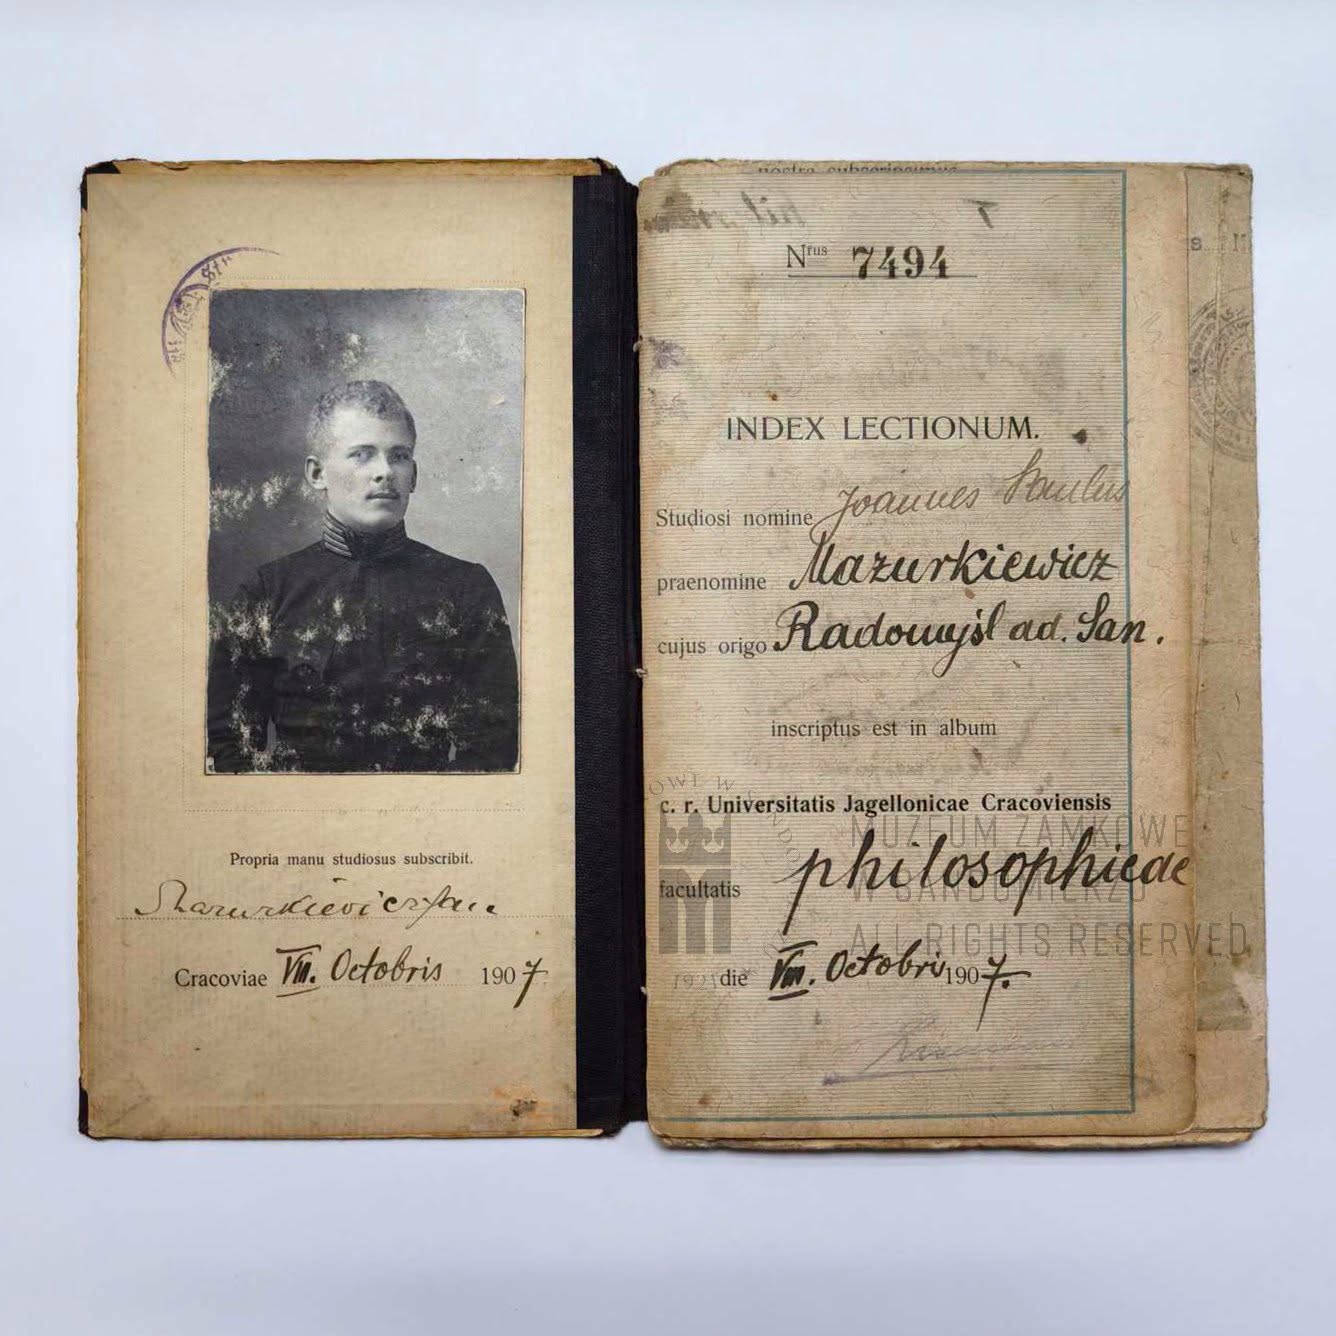 Propria manu studiosus subscribit.
Mazurkiewicz Jan
Cracoviae VIII. Octobris 1907
nostra subscripsimus
Nrus 7494
INDEX LECTIONUM.
Studiosi nomine Joannes Paulus
praenomine Mazurkiewicz
cujus origo Radomyśl ad. San.
inscriptus est in album
c. r. Universitatis Jagellonicae Cracoviensis
facultatis philosophicae
die VIII. Octobris 1907.
MUZEUM ZAMKOWE
W SANDOMIERZU
ALL RIGHTS RESERVED
1921